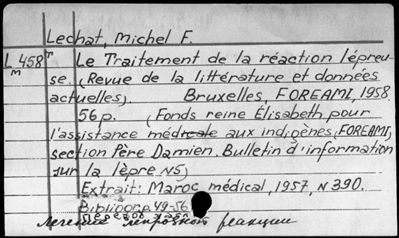 Lechat, Michel F.
L 458 m т Le Traitement de la réaction lépreu-
se. (Revue de la littérature et données
actuelles). Bruxelles, FOREAMI, 1958.
56 p. (Fonds reine Élisabeth pour
l'assistance médicale aux indigènes, FOREAMI,
section Père Damien. Bulletin d'information
sur la lèpre N5)
Extrait: Maroc médical, 1957, N 390.
Bibliogr. p. 49-56
Перевод загл.:
Лечение лепрозной реакции